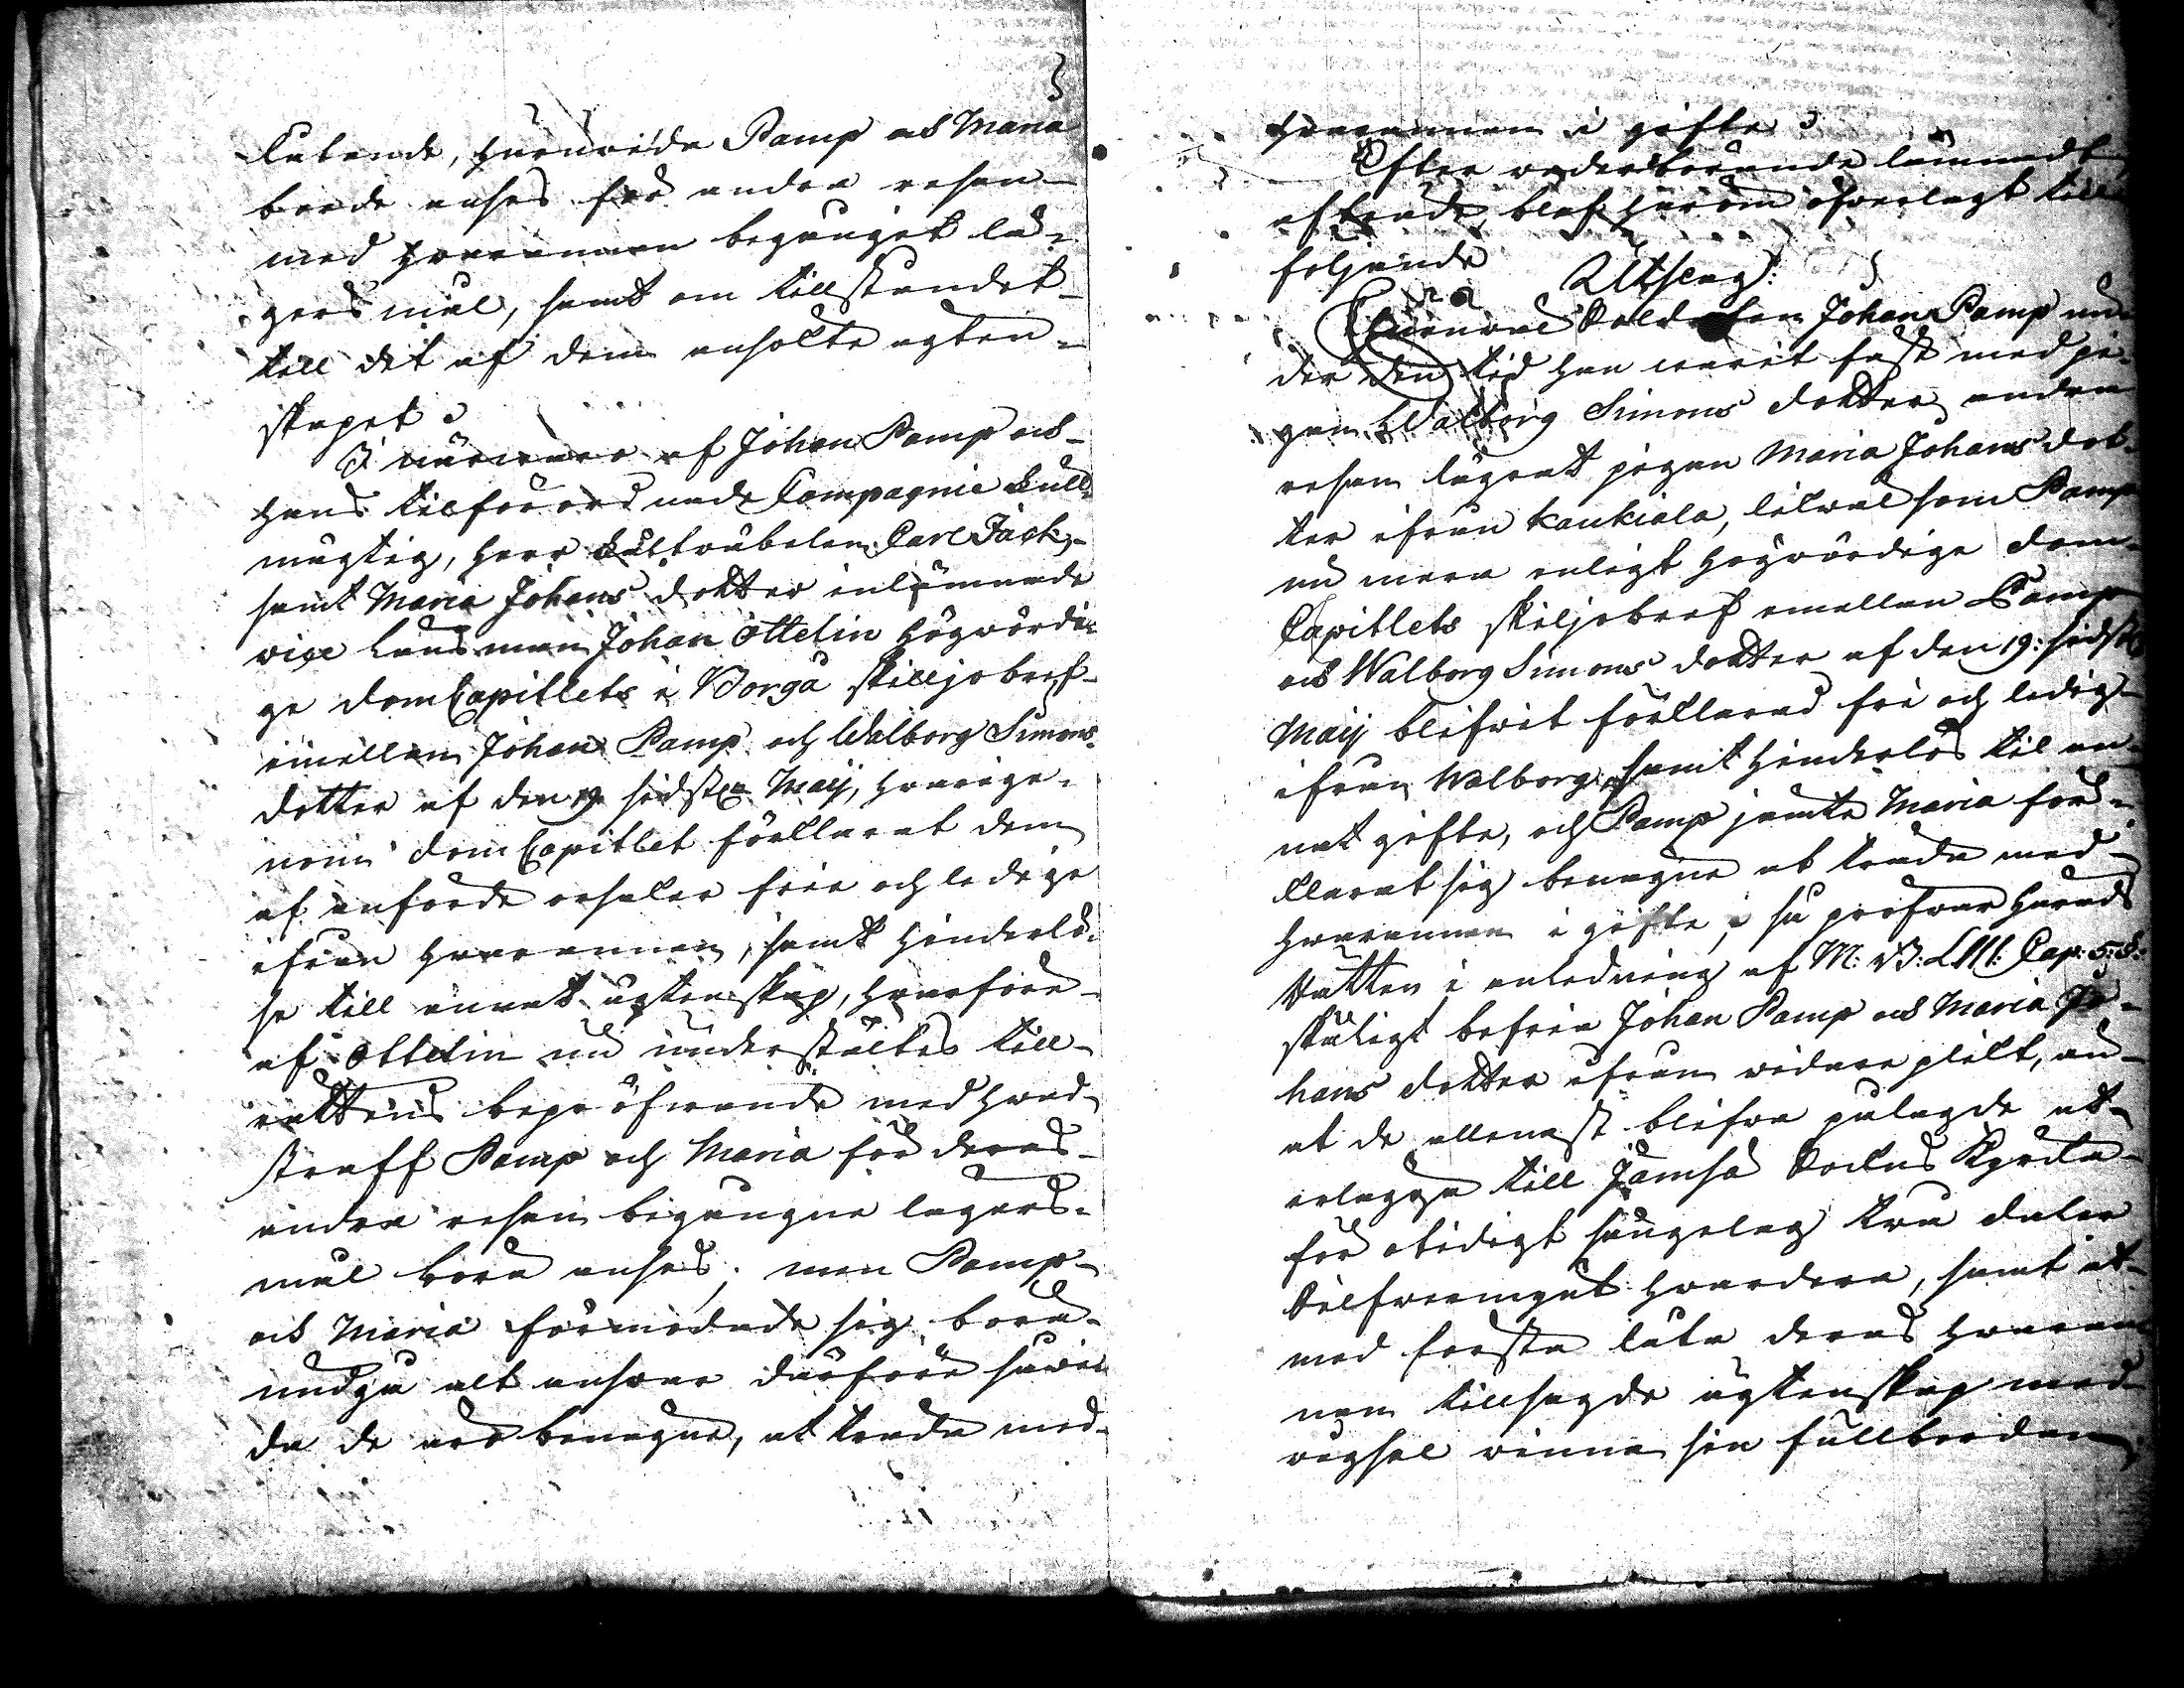 lutande, huruvida Pamp och Maria
borde anses för andra resan
med hvarannan begånget lä-
gersmål, samt om tillståndet
till det af dem ansökte ägten-
skapet.
I närvaro af Johan Pamp och
hans tilförordnade Compagnie full-
mägtig, Herr Carl Jack,
samt Maria Johans dotter inlämnade
vice Länsman Johan Ottelin Högvördi-
ge DomCapitlets i Borgå skiljobref
emellan Johan Pamp och Walborg Simons
dotter af den 19 sidstl. Maij, hvarige-
nom DomCapitlet förklarat dem
af anförde orsaker frie och ledige
ifrån hvarannan, samt hinderlö-
se till annat ägtenskap, hvarföre
af Ottelin nu understältes till
rättens bepröfvande med hvad
straff Pamp och Maria för deras
andra resan begångne lägers-
mål böra anses; men Pamp
och Maria förmodade sig böra
undgå alt ansvar därföre såvi-
da de äro benägne, at träda med
hvarannan i gifte.
Efter vederbörande lämnadt
afträde, blef härom öfverlagt till
följande
Utslag:
Ehuruväl Soldaten Johan Pamp un-
der den tid han varit fäst med pi-
gan Walborg Simons dotter, andra
resan lägrat pigan Maria Johans dot-
ter ifrån Kaukiala, likväl som Pamp
nu mera enligt Högvördige Dom-
Capitlets skiljobref emellan Pamp
och Walborg Simons dotter af den 19: sidstl.
Maij blifvit förklarad fri och ledig
ifrån Walborg, samt hinderlös til an-
nat gifte, och Pamp jämte Maria för-
klarat sig benägne at träda med
hvarannan i gifte; så pröfvar Härads
Rätten i anledning af M: B: LIII: Cap: 5: §:
skäligt befria Johan Pamp och Maria Jo-
hans dotter ifrån vidare plikt, än
at de allenast blifva pålagde at
erlägga till Jämsä Sockns Kyrka
för otidigt sängelag två daler
Silfvermynt hvardera, samt at
med första låta deras hvaran-
nan tillsagde ägtenskap med
vigsel vinna sin fullbordan.